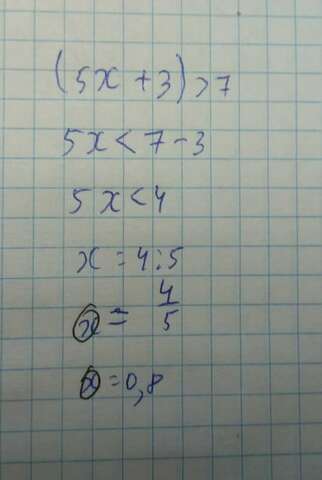 (5x + 3) > 7
5x < 7 - 3
5x < 4
x = 4 : 5
x = 4/5
x = 0,8